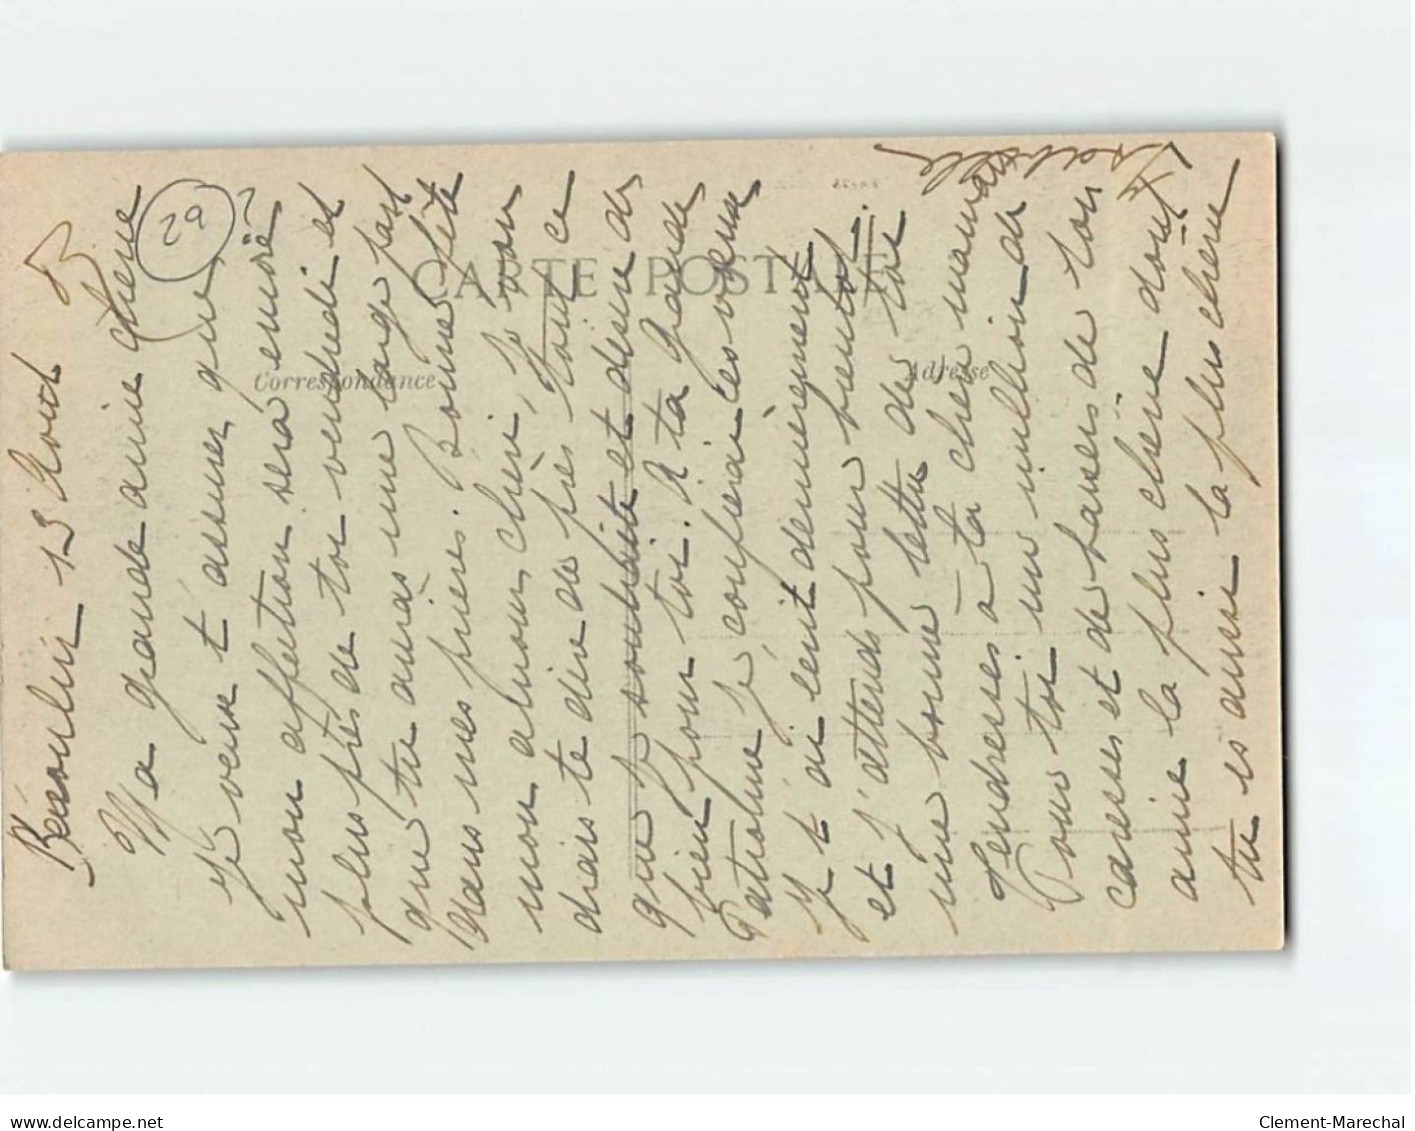 Béaulin 13 Août
Ma grande amie chérie
Je veux t'assurer que
mon affection sera encore
plus près de toi vendredi et
que tu auras une large part
dans mes prières. Bonne fête
mon amour chéri, je vou
drais te dire de près tout ce
que je souhaite et désire de
bien pour toi. A ta grande
Patronne je confierai ces vœux
Je t'ai écrit dernièrement
et j'attends pour bientôt
une bonne lettre de toi
Tendresses à ta chère maman
Pour toi un million de
caresses et de baisers de ton
amie la plus chère dont
tu es aussi la plus chère
Isabelle
29
CARTE POSTALE
Correspondance
Adresse
delcampe.net
Clement-Marechal